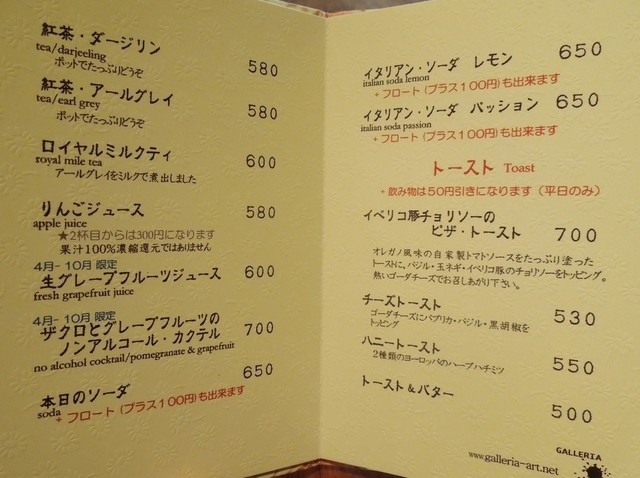 紅茶・ダージリン 580
tea/darjeeling
ポットでたっぷりどうぞ
紅茶・アールグレイ 580
tea/earl grey
ポットでたっぷりどうぞ
ロイヤルミルクティ 600
royal mile tea
アールグレイをミルクで煮出しました
りんごジュース 580
apple juice
★2杯目からは300円になります
果汁100%濃縮還元ではありません
4月-10月 限定
生グレープフルーツジュース 600
fresh grapefruit juice
4月-10月 限定
ザクロとグレープフルーツの
ノンアルコール・カクテル 700
no alcohol cocktail/pomegranate & grapefruit
本日のソーダ 650
soda
+フロート(プラス100円)も出来ます
イタリアン・ソーダ レモン 650
italian soda lemon
+フロート(プラス100円)も出来ます
イタリアン・ソーダ パッション 650
italian soda passion
+フロート(プラス100円)も出来ます
トースト Toast
+飲み物は50円引きになります(平日のみ)
イベリコ豚チョリソーの
ピザ・トースト 700
オレガノ風味の自家製トマトソースをたっぷり塗った
トーストに、バジル・玉ネギ・イベリコ豚のチョリソーをトッピング。
熱いゴーダチーズでお召しあがり下さい。
チーズトースト 530
ゴーダチーズにパプリカ・バジル・黒胡椒を
トッピング
ハニートースト 550
2種類のヨーロッパのハーブハチミツ
トースト&バター 500
GALLERIA
www.galleria-art.net